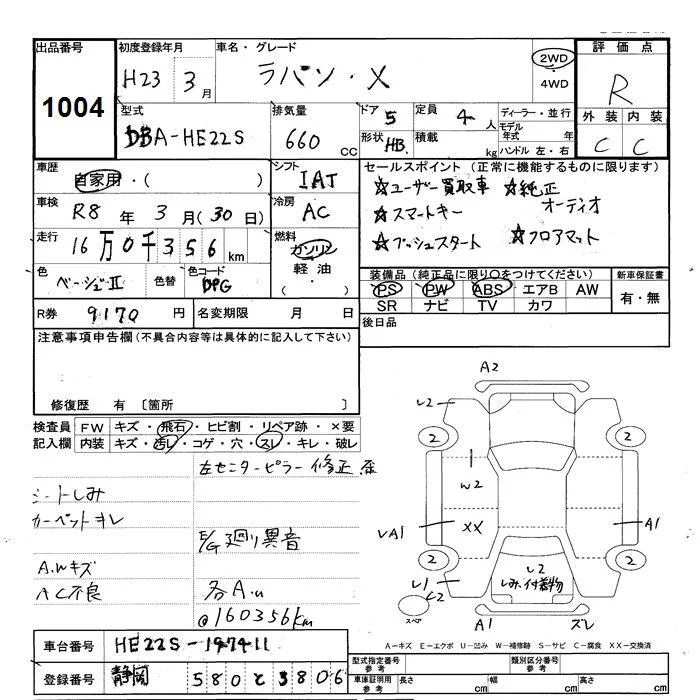 出品番号
1004
初度登録年月
H23 3月
車名・グレード
ラパン・X
2WD
・
4WD
評価点
R
外装 内装
C C
型式
DBA-HE22S
排気量
660 cc
ドア 5
定員 4人
形状 HB
積載 kg
ディーラー・並行
モデル年式 年
ハンドル 左・右
車歴
自家用・( )
シフト
IAT
車検
R8年 3月(30日)
冷房
AC
走行
16万0千356km
燃料
ガソリン
軽油
( ・ )
色
ベージュII
色替
色コード
セールスポイント (正常に機能するものに限ります)
☆ユーザー買取車 ☆純正オーディオ
☆スマートキー
☆プッシュスタート ☆フロアマット
装備品(純正品に限り○をつけてください)
PS PW ABS エアB AW
SR ナビ TV カワ
新車保証書
有・無
R券 9170円
名変期限 月 日
後日品
注意事項申告欄(不具合内容等は具体的に記入して下さい)
修復歴 有 〔箇所 〕
検査員記入欄
FW キズ・飛石・ヒビ割・リペア跡・×要
内装 キズ・汚レ・コゲ・穴・スレ・キレ・破レ
左センターピラー修正
シートしみ
カーペットキレ
E/G廻り異音
A.Wキズ
AC不良
各A.u
@160356km
A2
レ2
2
2
W2
XX
レA1
A1
2
2
レ1
レ2
レ2
しみ.付着物
スペア
A1
スレ
A-キズ E-エクボ U-凹み W-補修跡 S-サビ C-腐食 XX-交換済
車台番号
HE22S-197411
登録番号
静岡 580と3806
型式指定番号 参考
類別区分番号 参考
車庫証明用 参考
長さ cm
幅 cm
高さ cm